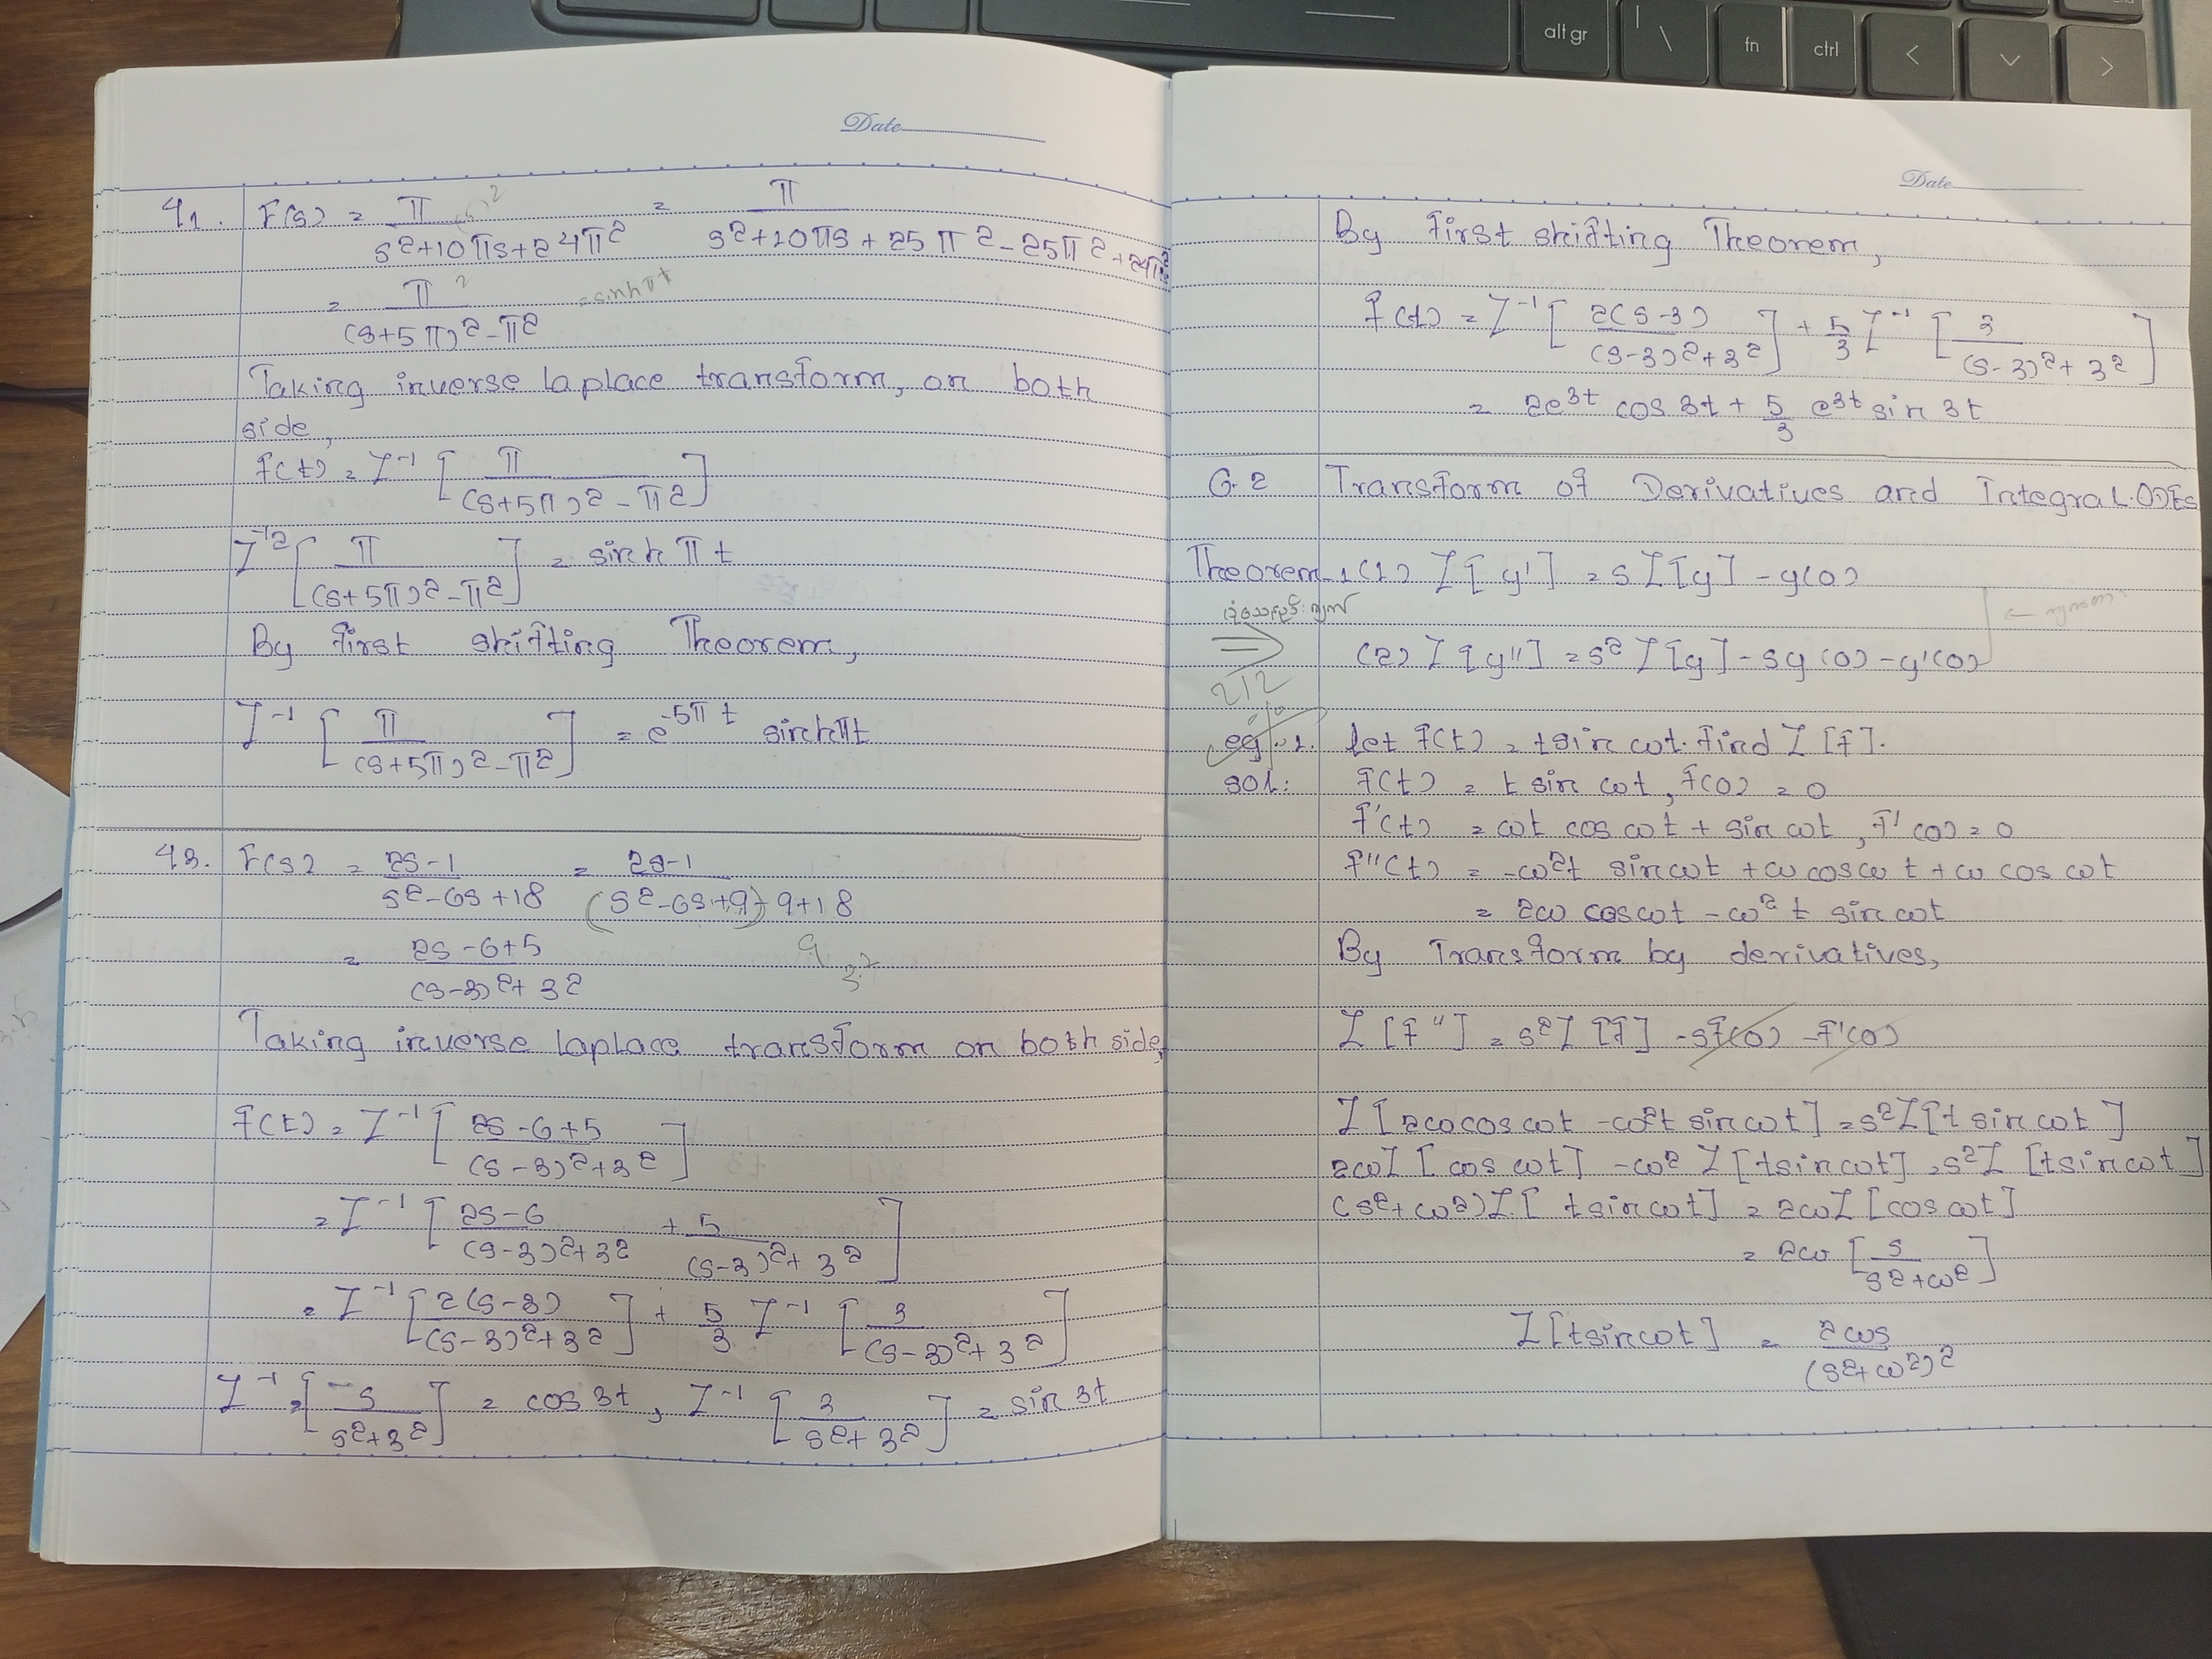 alt gr
\
fn
ctrl
<
>
Date
41. F(s) = π / (s²+10πs+24π²) = π / (s²+10πs+25π²-25π²+24π²)
= π / ((s+5π)²-π²) = sinh πt
Taking inverse laplace transform, on both
side,
f(t) = L⁻¹ [ π / ((s+5π)²-π²) ]
L⁻¹ [ π / ((s+5π)²-π²) ] = sinh πt
By first shifting Theorem,
L⁻¹ [ π / ((s+5π)²-π²) ] = e^(-5πt) sinh πt
43. F(s) = (2s-1) / (s²-6s+18) = (2s-1) / ((s²-6s+9)-9+18)
= (2s-6+5) / ((s-3)²+3²)
9
3²
Taking inverse laplace transform on both side,
f(t) = L⁻¹ [ (2s-6+5) / ((s-3)²+3²) ]
= L⁻¹ [ (2s-6) / ((s-3)²+3²) + 5 / ((s-3)²+3²) ]
= L⁻¹ [ 2(s-3) / ((s-3)²+3²) ] + 5/3 L⁻¹ [ 3 / ((s-3)²+3²) ]
L⁻¹ [ s / (s²+3²) ] = cos 3t, L⁻¹ [ 3 / (s²+3²) ] = sin 3t
Date
By first shifting Theorem,
f(t) = L⁻¹ [ 2(s-3) / ((s-3)²+3²) ] + 5/3 L⁻¹ [ 3 / ((s-3)²+3²) ]
= 2e^(3t) cos 3t + 5/3 e^(3t) sin 3t
6.2 Transform of Derivatives and Integral.ODEs
Theorem-1(1) L[y'] = sL[y] - y(0)
(2) L[y''] = s² L[y] - sy(0) - y'(0)
212
eg:1. Let f(t) = t sin ωt. Find L[f].
sol: f(t) = t sin ωt, f(0) = 0
f'(t) = ωt cos ωt + sin ωt, f'(0) = 0
f''(t) = -ω²t sin ωt + ω cos ωt + ω cos ωt
= 2ω cos ωt - ω² t sin ωt
By Transform by derivatives,
L[f''] = s²L[f] - sf(0) - f'(0)
L[2ω cos ωt - ω²t sin ωt] = s²L[t sin ωt]
2ωL[cos ωt] - ω² L[t sin ωt] = s²L[t sin ωt]
(s²+ω²)L[t sin ωt] = 2ωL[cos ωt]
= 2ω [ s / (s²+ω²) ]
L[t sin ωt] = 2ωs / (s²+ω²)²